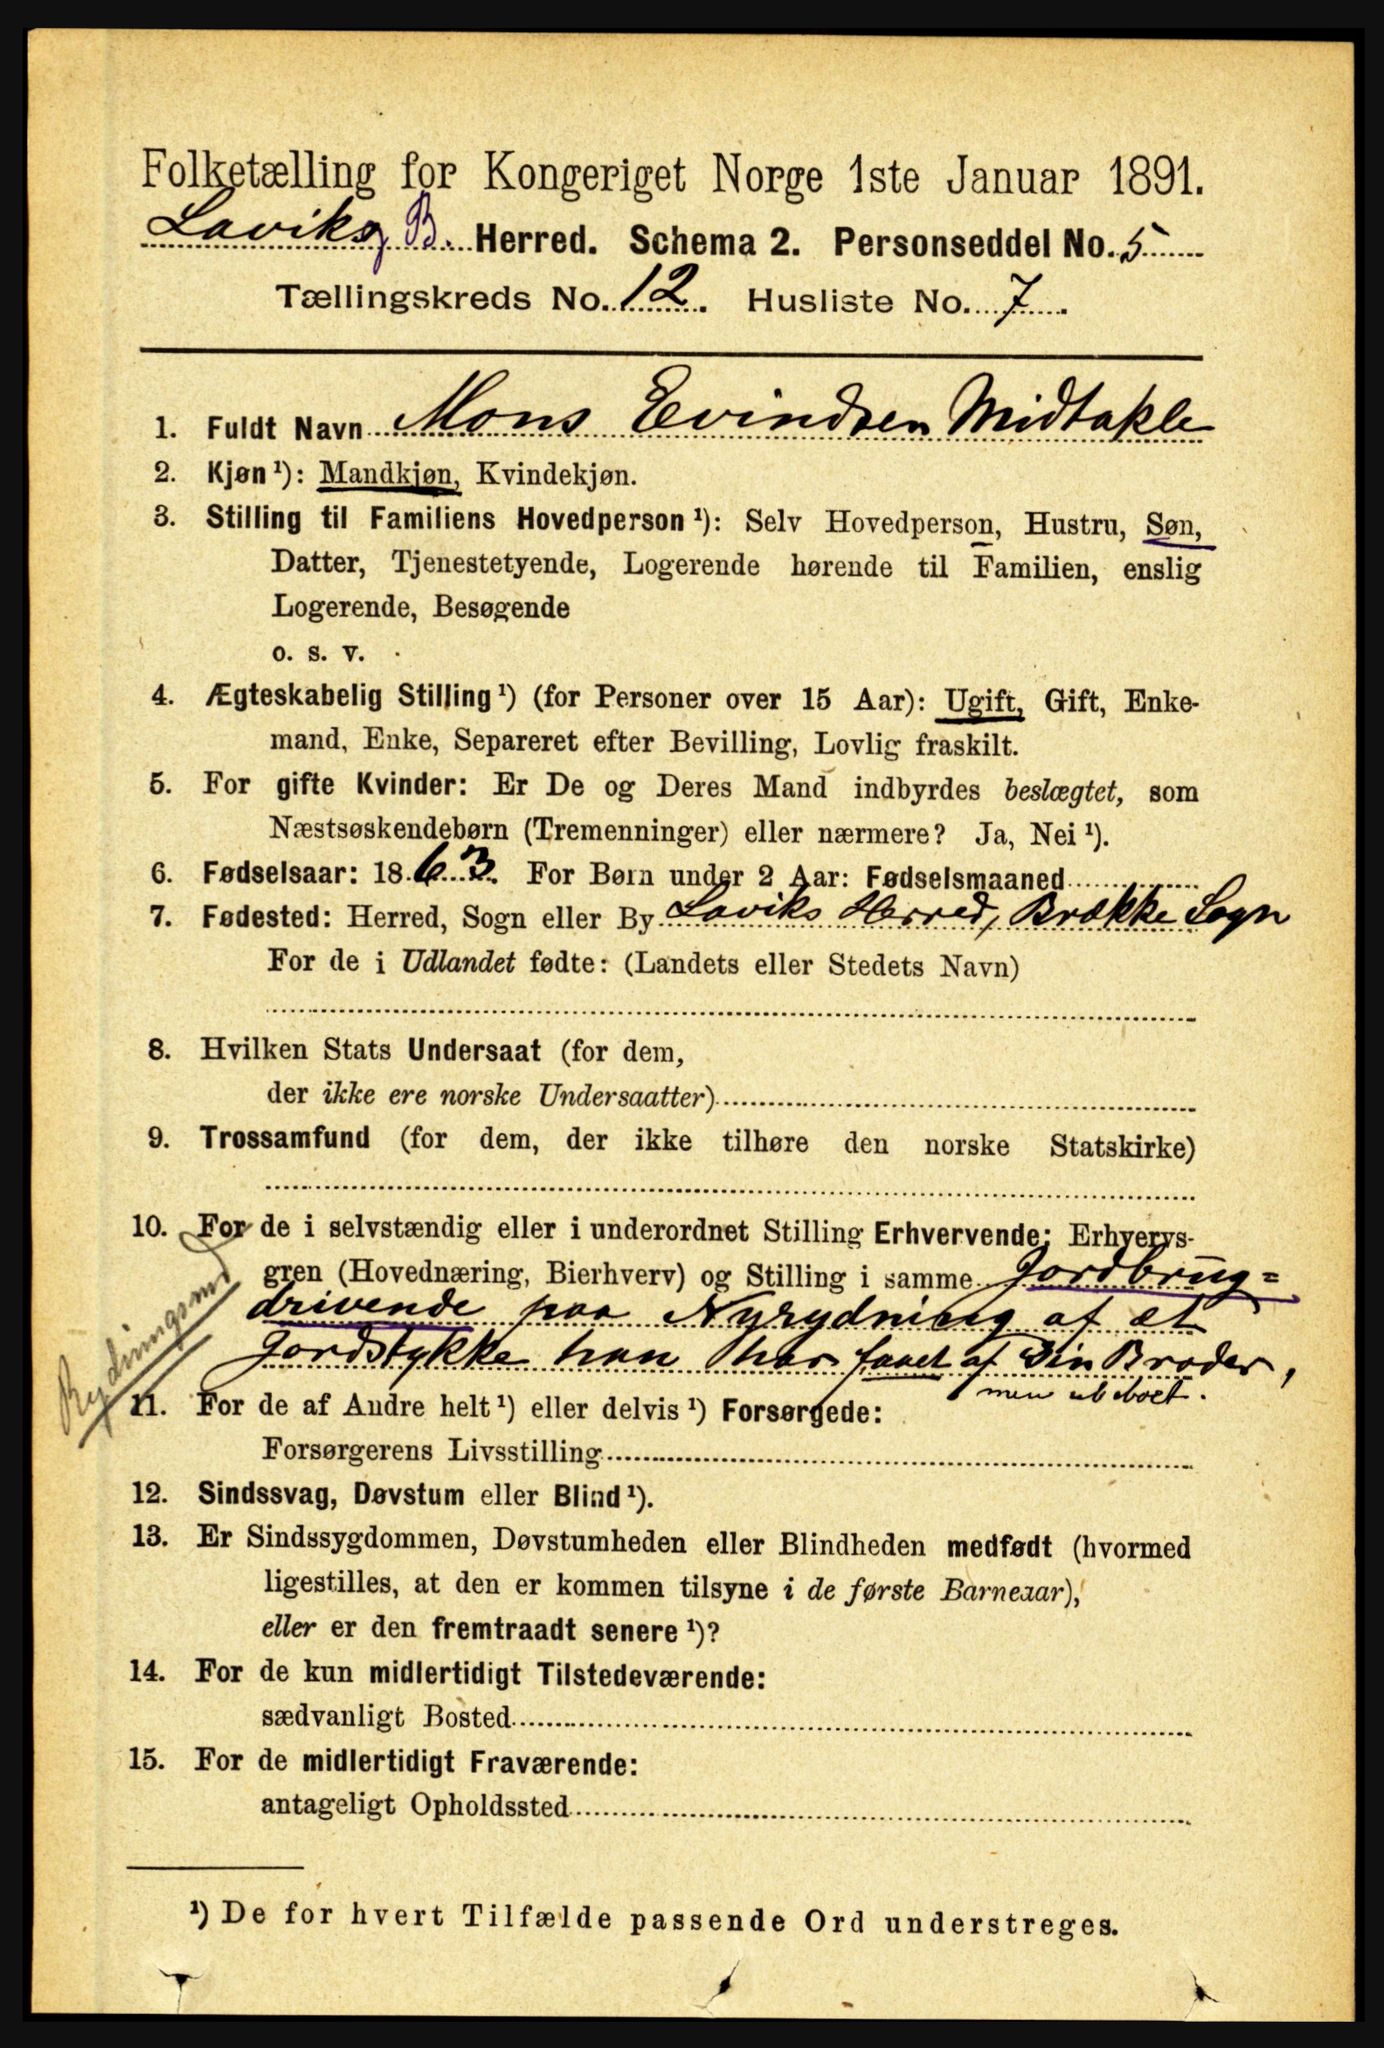 Folketælling for Kongeriget Norge 1ste Januar 1891.
Laviks og B. Herred. Schema 2. Personseddel No. 5
Tællingskreds No. 12. Husliste No. 7.
1. Fuldt Navn Mons Evindsen Midtakle
2. Kjøn¹): Mandkjøn, Kvindekjøn.
3. Stilling til Familiens Hovedperson¹): Selv Hovedperson, Hustru, Søn,
Datter, Tjenestetyende, Logerende hørende til Familien, enslig
Logerende, Besøgende
o. s. v.
4. Ægteskabelig Stilling¹) (for Personer over 15 Aar): Ugift, Gift, Enke-
mand, Enke, Separeret efter Bevilling, Lovlig fraskilt.
5. For gifte Kvinder: Er De og Deres Mand indbyrdes beslægtet, som
Næstsøskendebørn (Tremenninger) eller nærmere? Ja, Nei¹).
6. Fødselsaar: 1863. For Børn under 2 Aar: Fødselsmaaned
7. Fødested: Herred, Sogn eller By Laviks Herred, Brække Sogn
For de i Udlandet fødte: (Landets eller Stedets Navn)
8. Hvilken Stats Undersaat (for dem,
der ikke ere norske Undersaatter)
9. Trossamfund (for dem, der ikke tilhøre den norske Statskirke)
10. For de i selvstændig eller i underordnet Stilling Erhvervende: Erhvervs-
gren (Hovednæring, Bierhverv) og Stilling i samme Jordbrug=
drivende paa Nyrydning af et
Jordstykke han har faaet af Sin Broder,
men ubeboet.
Rydningsmd
11. For de af Andre helt¹) eller delvis¹) Forsørgede:
Forsørgerens Livsstilling
12. Sindssvag, Døvstum eller Blind¹).
13. Er Sindssygdommen, Døvstumheden eller Blindheden medfødt (hvormed
ligestilles, at den er kommen tilsyne i de første Barneaar),
eller er den fremtraadt senere¹)?
14. For de kun midlertidigt Tilstedeværende:
sædvanligt Bosted
15. For de midlertidigt Fraværende:
antageligt Opholdssted
¹) De for hvert Tilfælde passende Ord understreges.